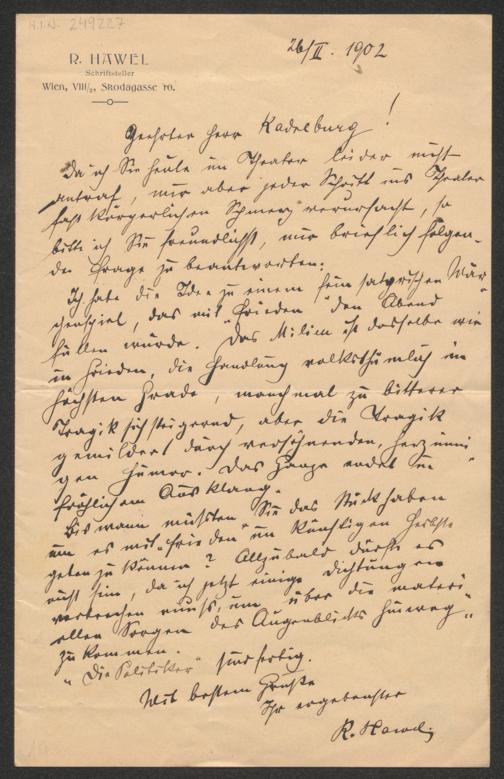 H.I.N. 249227
R. HAWEL
Schriftsteller
Wien, VIII/2, Skodagasse 10.
26/II. 1902
Geehrter Herr Kadelburg!
Da ich Sie heute im Theater leider nicht
antraf, mir aber jeder Schritt ins Theater
fast körperlichen Schmerz verursacht, so
bitte ich Sie freundlichst, mir brieflich folgen-
de Frage zu beantworten:
Ich habe die Idee zu einem satyrischen Mär-
chenspiel, das mit "Frieden" den Abend
füllen würde. Das Milieu ist dasselbe wie
in Frieden, die Handlung volksthümlich im
höchsten Grade, manchmal zu bitterer
Tragik sich steigernd, aber die Tragik
gemildert durch versöhnenden, herzinni-
gen Humor. Das Ganze endet in
fröhlichem Ausklang.
Bis wann müßten Sie das Stück haben
um es mit "Frieden" im künftigen Herbste
geben zu können? Allzubald dürfte es
nicht sein, da ich jetzt einige Dichtungen
muß, um über die materi-
ellen Sorgen des Augenblicks hinweg-
zukommen.
"Die Politiker" sind fertig.
Mit bestem Gruße
Ihr ergebenster
R. Hawel